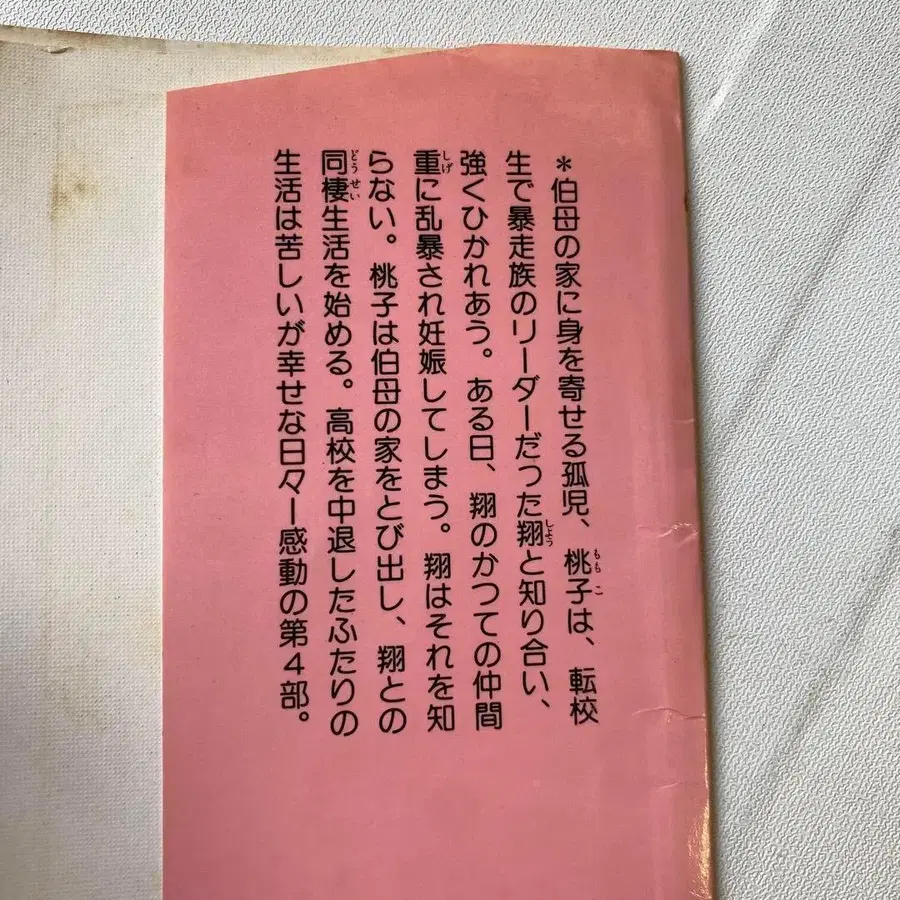 *伯母の家に身を寄せる孤児、桃子は、転校
生で暴走族のリーダーだった翔と知り合い、
強くひかれあう。ある日、翔のかつての仲間
重に乱暴され妊娠してしまう。翔はそれを知
らない。桃子は伯母の家をとび出し、翔との
同棲生活を始める。高校を中退したふたりの
生活は苦しいが幸せな日々ー感動の第4部。